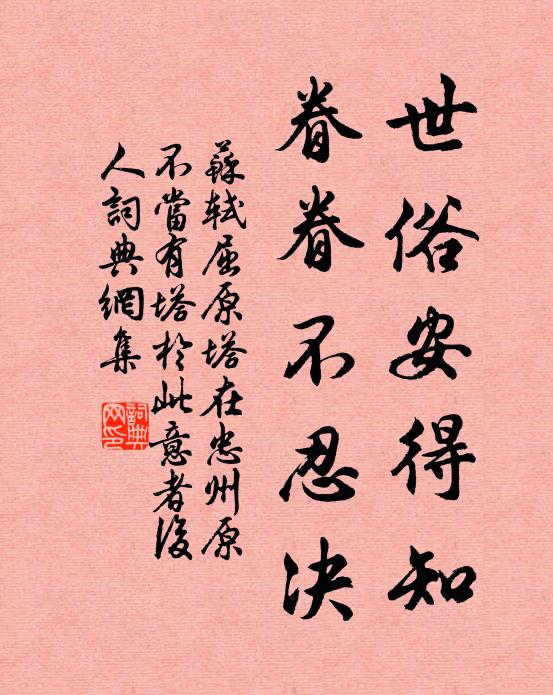 世俗安得知
眷眷不忍决
蘇軾屈原塔在忠州原
不當有塔於此意者後
人詞典網集
詞典网印